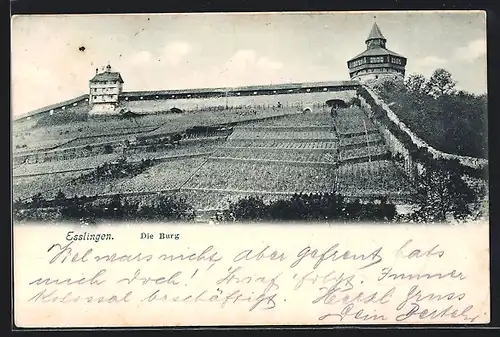 Esslingen. Die Burg
Viel war's nicht, aber gefreut hats
mich doch! Brief folgt. Immer
Kolossal beschäftigt. Herzl Gruss
Dein